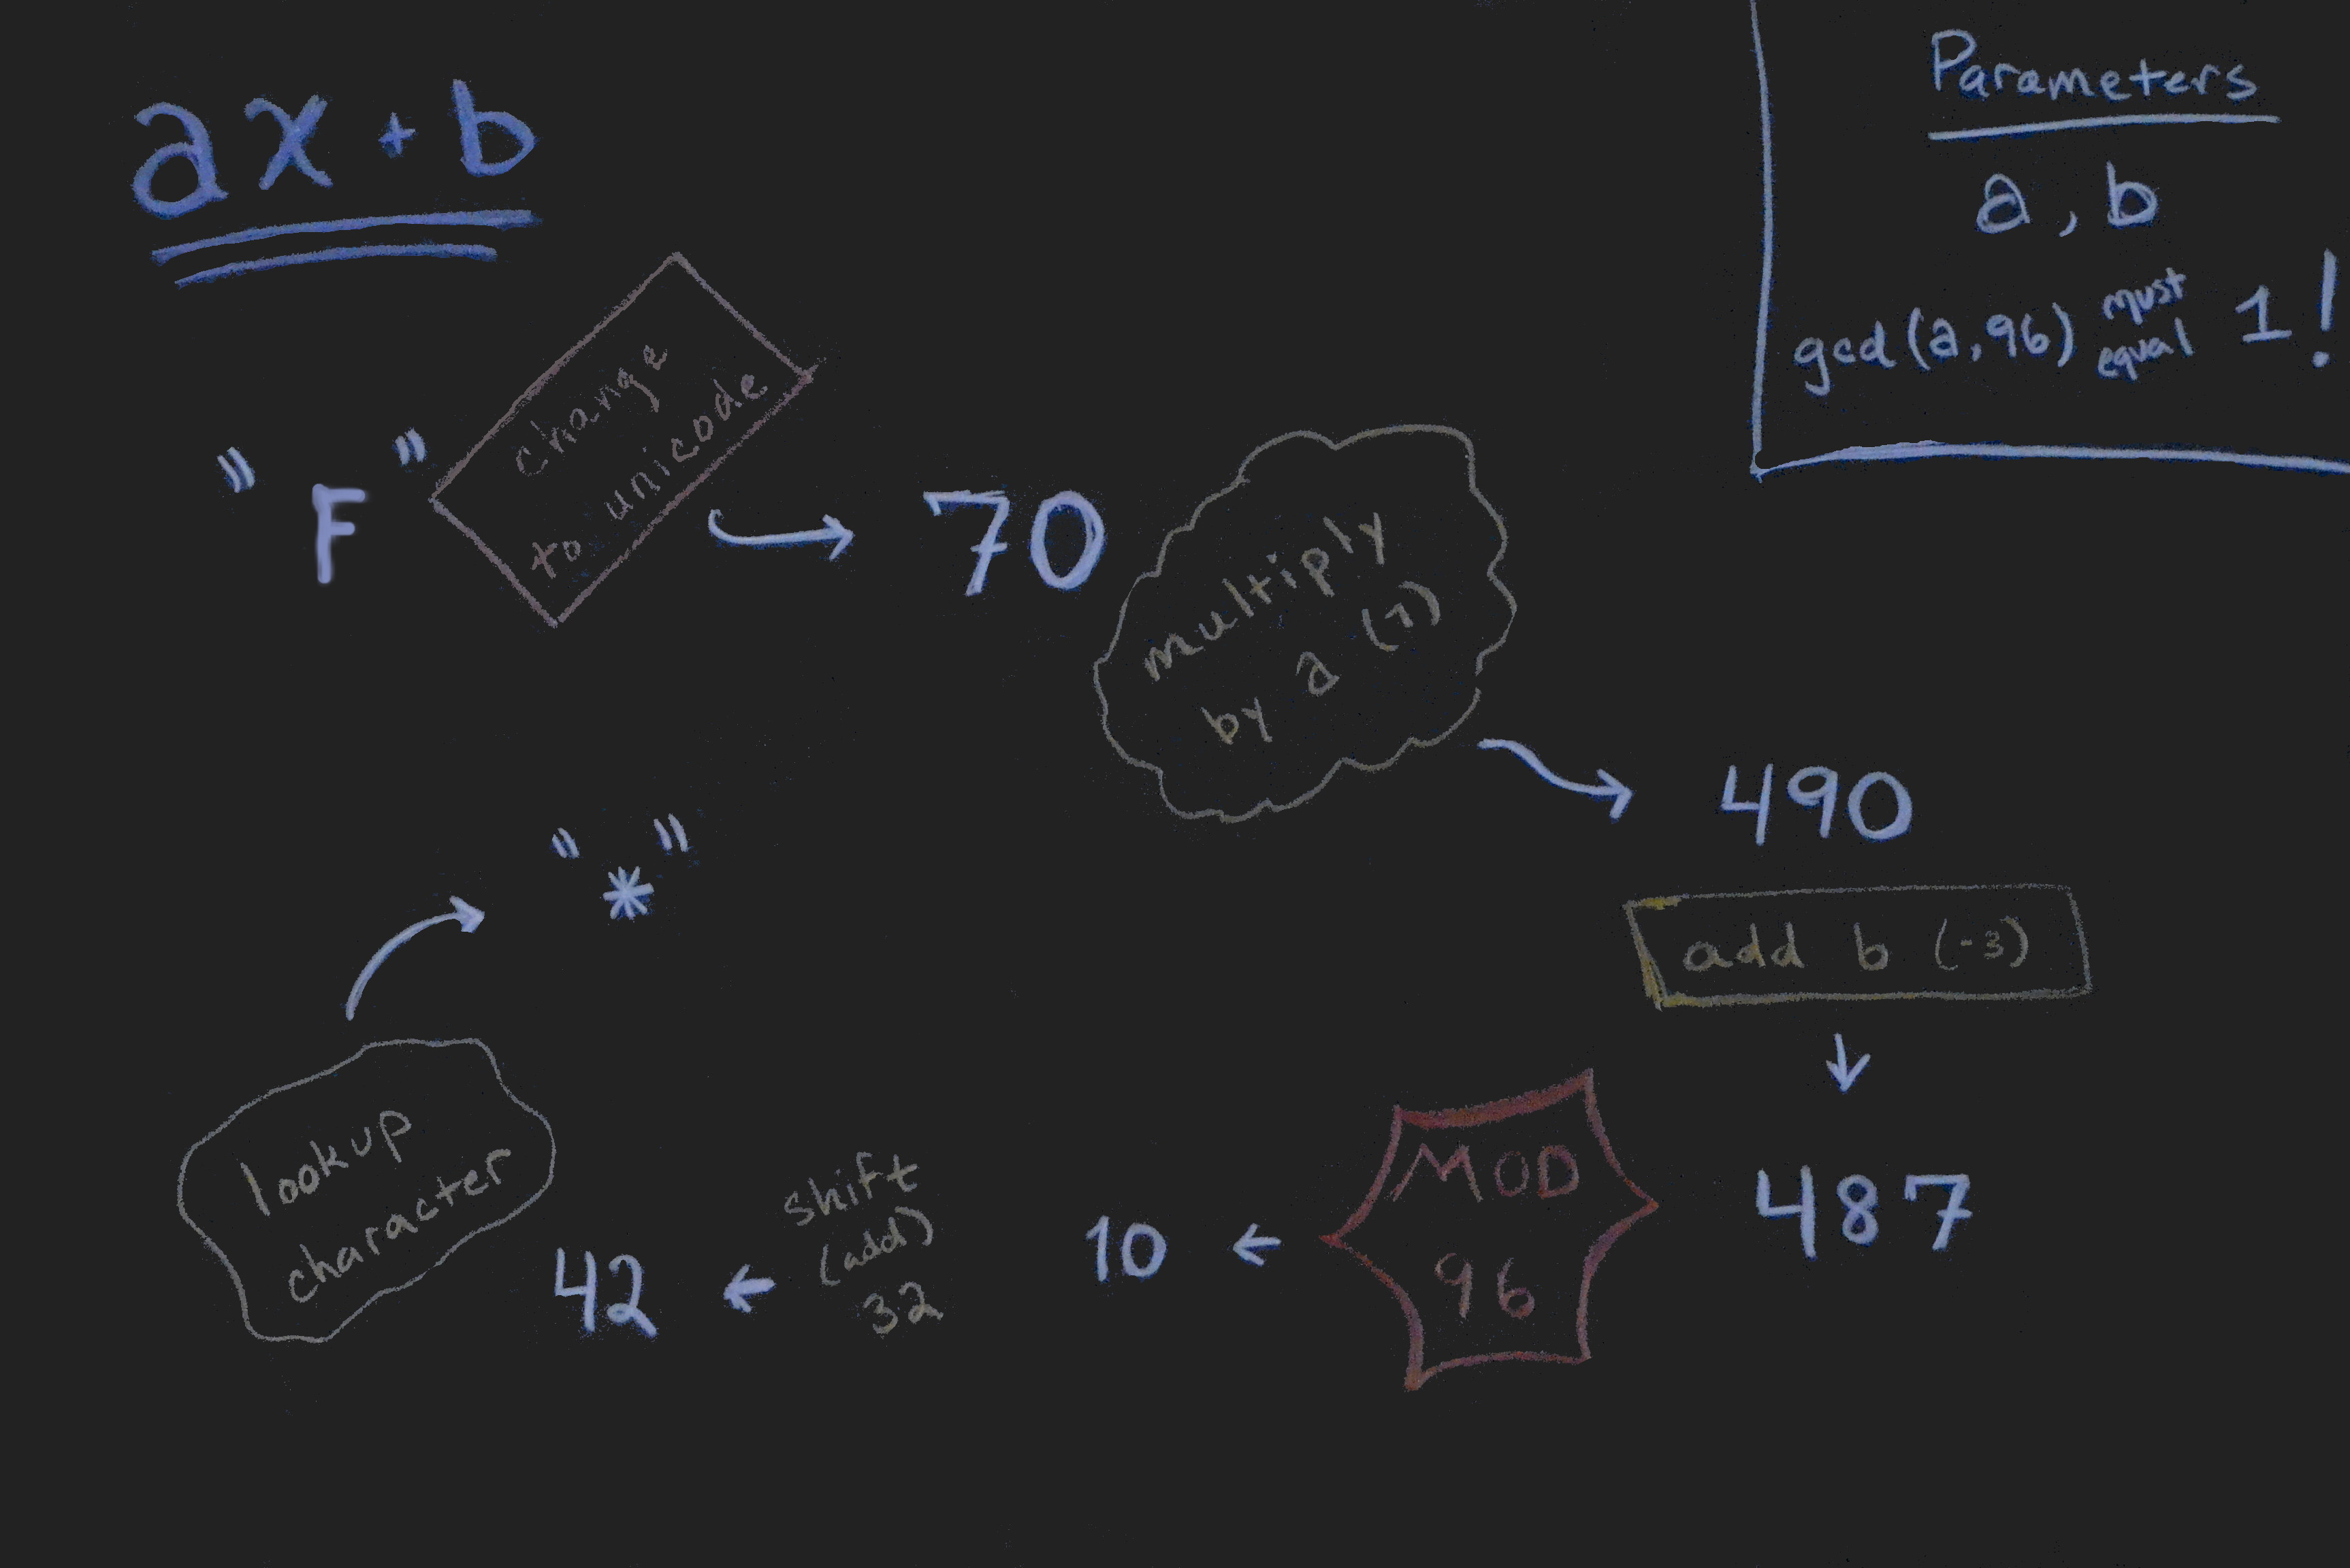 ax + b
Parameters
a, b
gcd(a, 96) must equal 1!
"F"
change
to unicode
70
multiply
by a (7)
490
add b (-3)
487
MOD
96
10
shift
(add)
32
42
lookup
character
"*"